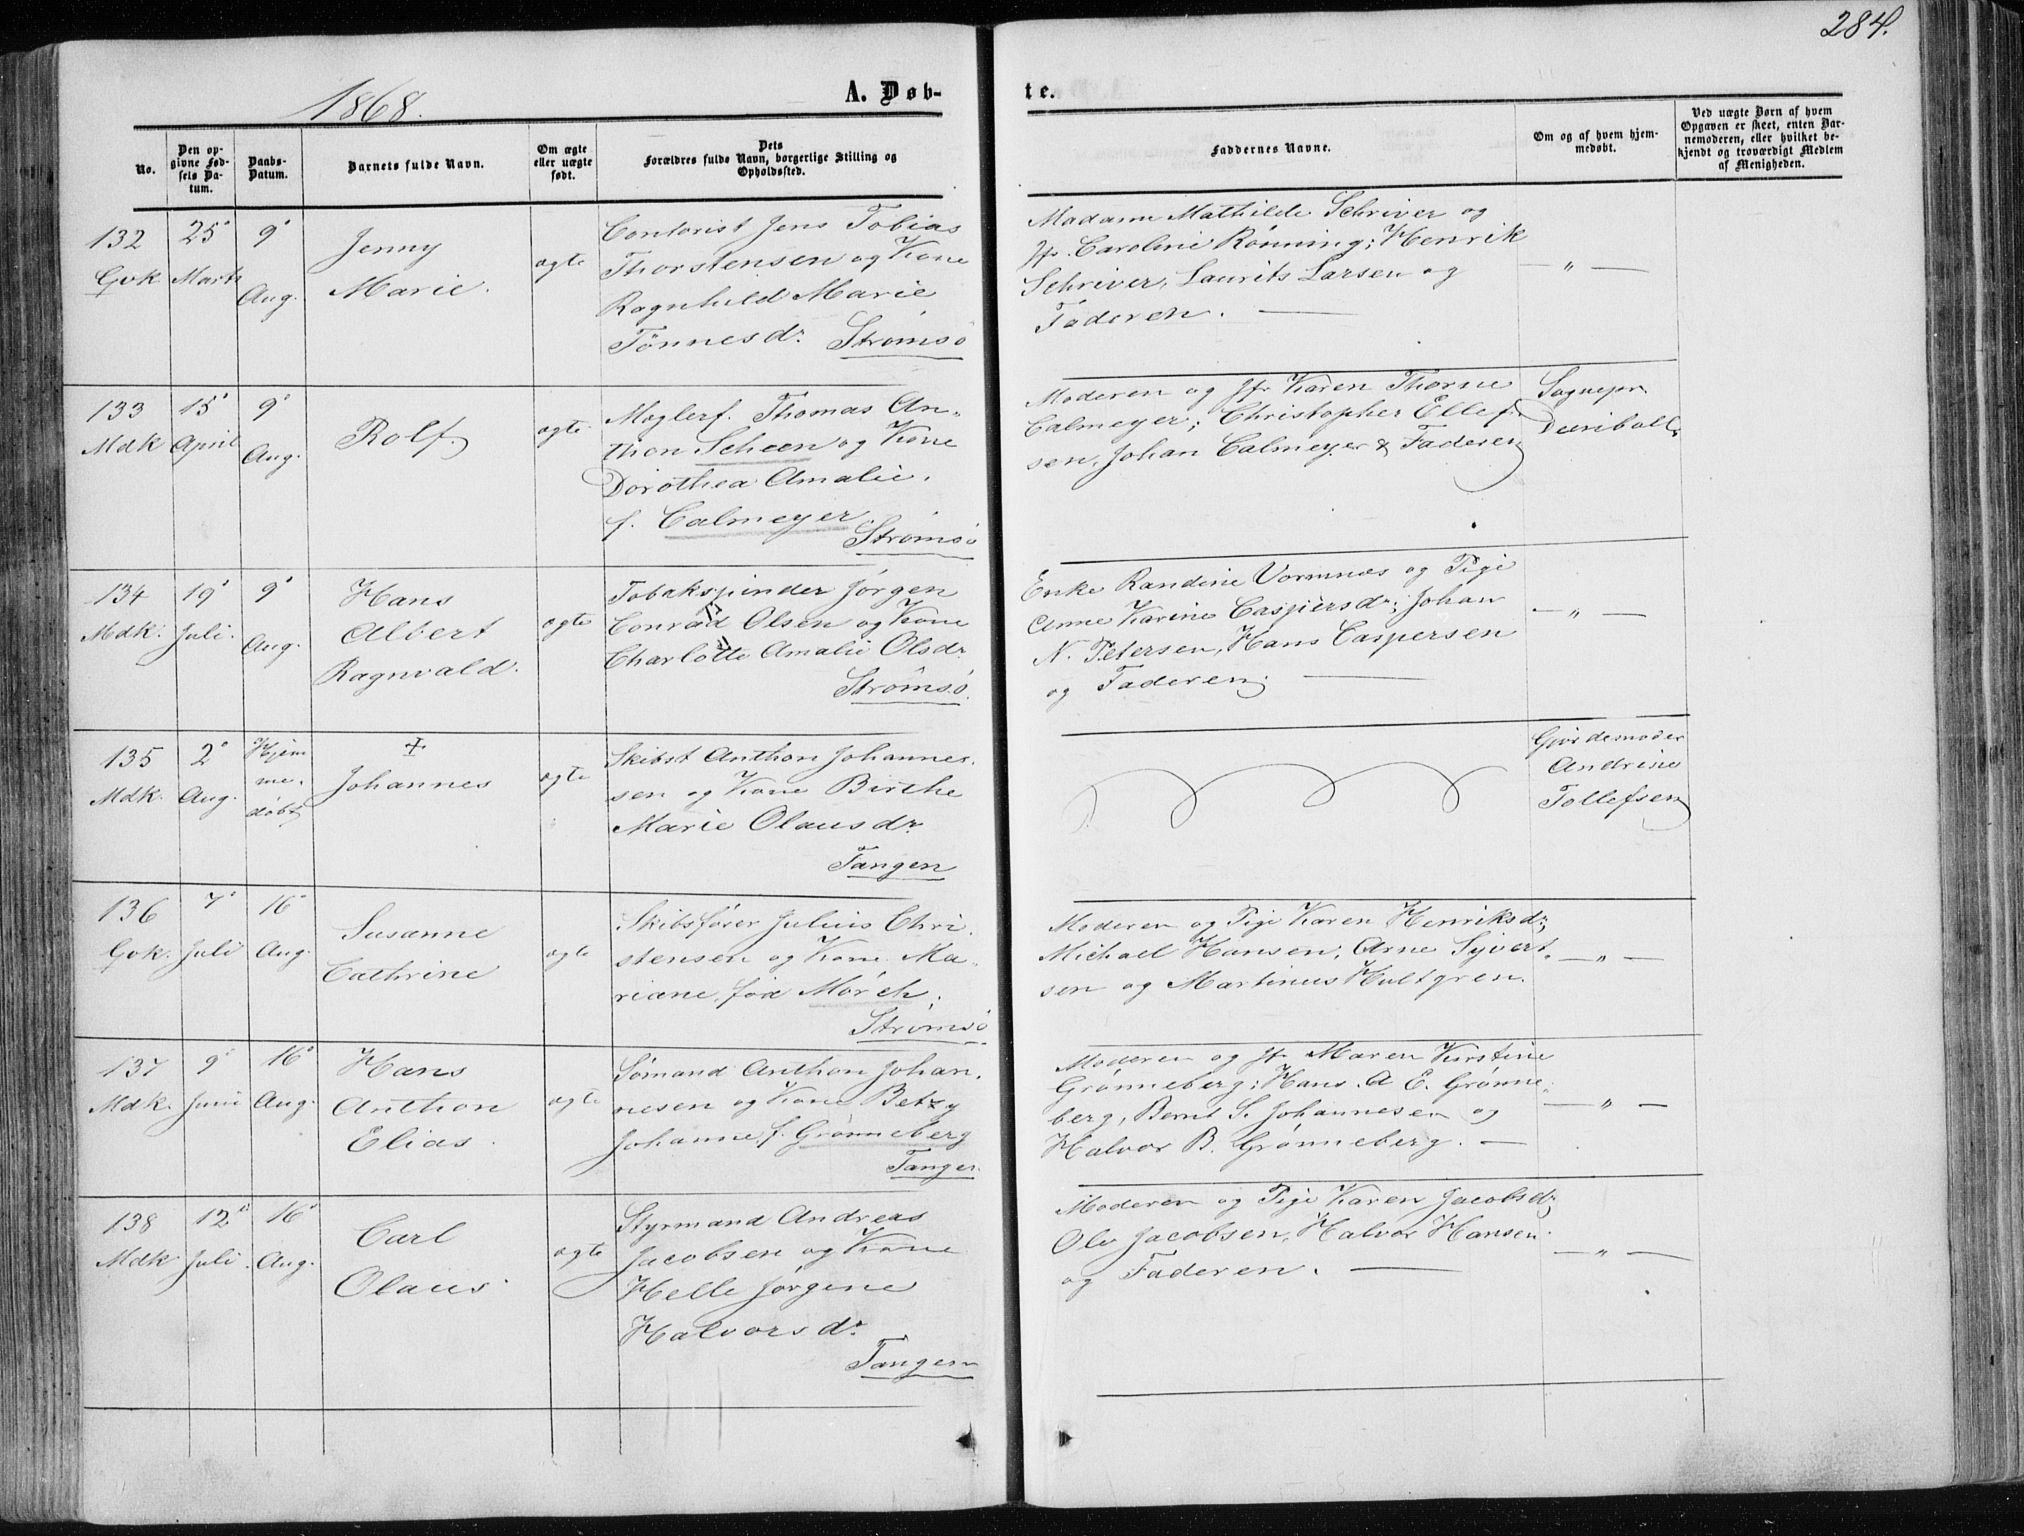 284.
1868.
A. Døb-
te.
No.
Den op-
givne Fød-
sels Da-
tum.
Daabs-
Datum.
Barnets fulde Navn.
Om ægte
eller uægte
født.
Dets
Forældres fulde Navn, borgerlige Stilling og
Opholdssted.
Faddernes Navne.
Om og af hvem hjem-
medøbt.
Ved uægte Børn af hvem
Opgaven er skeet, enten Bar-
nemoderen, eller hvilket be-
kjendt og troværdigt Medlem
af Menigheden.
132
Qvk
25
Marts
9
Aug.
Jenny
Marie.
ægte
Contorist Jens Tobias
Thorstensen og Kone
Ragnhild Marie
Tönnesdr. Strömsö
Madame Mathilde Schriver og
Jfr. Caroline Rønning; Henrik
Schriver, Laurits Larsen og
Faderen. —
— " —
133
Mdk
15
April
9
Aug.
Rolf.
ægte
Moglerf. Thomas An-
thon Scheen og Kone
Dorothea Amalie,
f. Calmeyer
Strömsö
Moderen og Jfr Karen Thorne
Calmeyer; Christopher Ellef-
sen, Johan Calmeyer & Faderen
Sognepr.
134
Mdk.
19
Juli.
9
Aug.
Hans
Albert
Ragnvald.
ægte
Tobakspinder Jörgen
Conrad Olsen og Kone
Charlotte Amalie Olsdr.
Strömsö.
Enke Randine Vormnæs og Pige
Anne Karine Caspersdr; Johan
N. Petersen, Hans Caspersen
og Faderen. —
— " —
135
Mdk.
2
Aug.
Hjem
me-
døbt
+
Johannes
ægte
Skibst Anthon Johannes-
sen og Kone Birthe
Marie Olausdr.
Tangen
Gjordemoder
Andrine
Tollefsen
136
Qvk.
7
Juli
16
Aug.
Susanne
Cathrine
ægte
Skibsfører Julius Chri-
stensen og Kone Ma-
riane, fød Mörch;
Strömsö
Moderen og Pige Karen Henriksdr;
Michael Hansen, Arne Syvert-
sen og Martinus Hultgren.
— " —
137
Mdk.
9
Juni
16
Aug.
Hans
Anthon
Elias.
ægte
Sømand Anthon Johan-
nesen og Kone Betzy
Johanne f. Grønneberg
Tangen.
Moderen og Jfr Maren Kirstine
Grønneberg; Hans. A E. Grønne-
berg, Bernt S. Johannesen og
Halvor B. Grønneberg. —
— " —
138
Mdk
12
Juli.
16
Aug.
Carl
Olaus.
ægte
Styrmand Andreas
Jacobsen og Kone
Helle Jørgine
Halvorsdr.
Tangen
Moderen og Pige Karen Jacobsdr;
Ole Jacobsen, Halvor Hansen
og Faderen. —
— " —